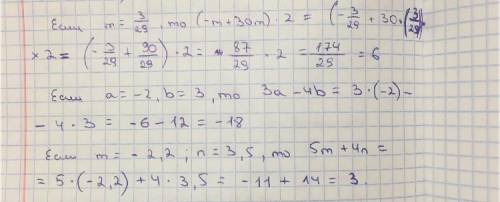 Если m = 3/29, то (-m + 30m) · 2 = (-3/29 + 30 · (3/29))
× 2 = (-3/29 + 90/29) · 2 = 87/29 · 2 = 174/29 = 6
Если a = -2, b = 3, то 3a - 4b = 3 · (-2) -
- 4 · 3 = -6 - 12 = -18
Если m = -2,2; n = 3,5, то 5m + 4n =
= 5 · (-2,2) + 4 · 3,5 = -11 + 14 = 3.